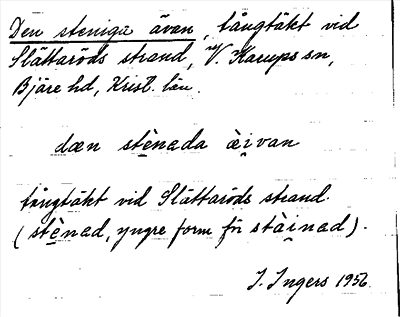 Den steniga ävan, tångtäkt vid
Slättaröds strand, V. Karups sn,
Bjäre hd, Krist. län.
dæn stènada æ̀i̯van
tångtäkt vid Slättaröds strand.
(stènad, yngre form för stài̯nad).
I. Ingers 1956.